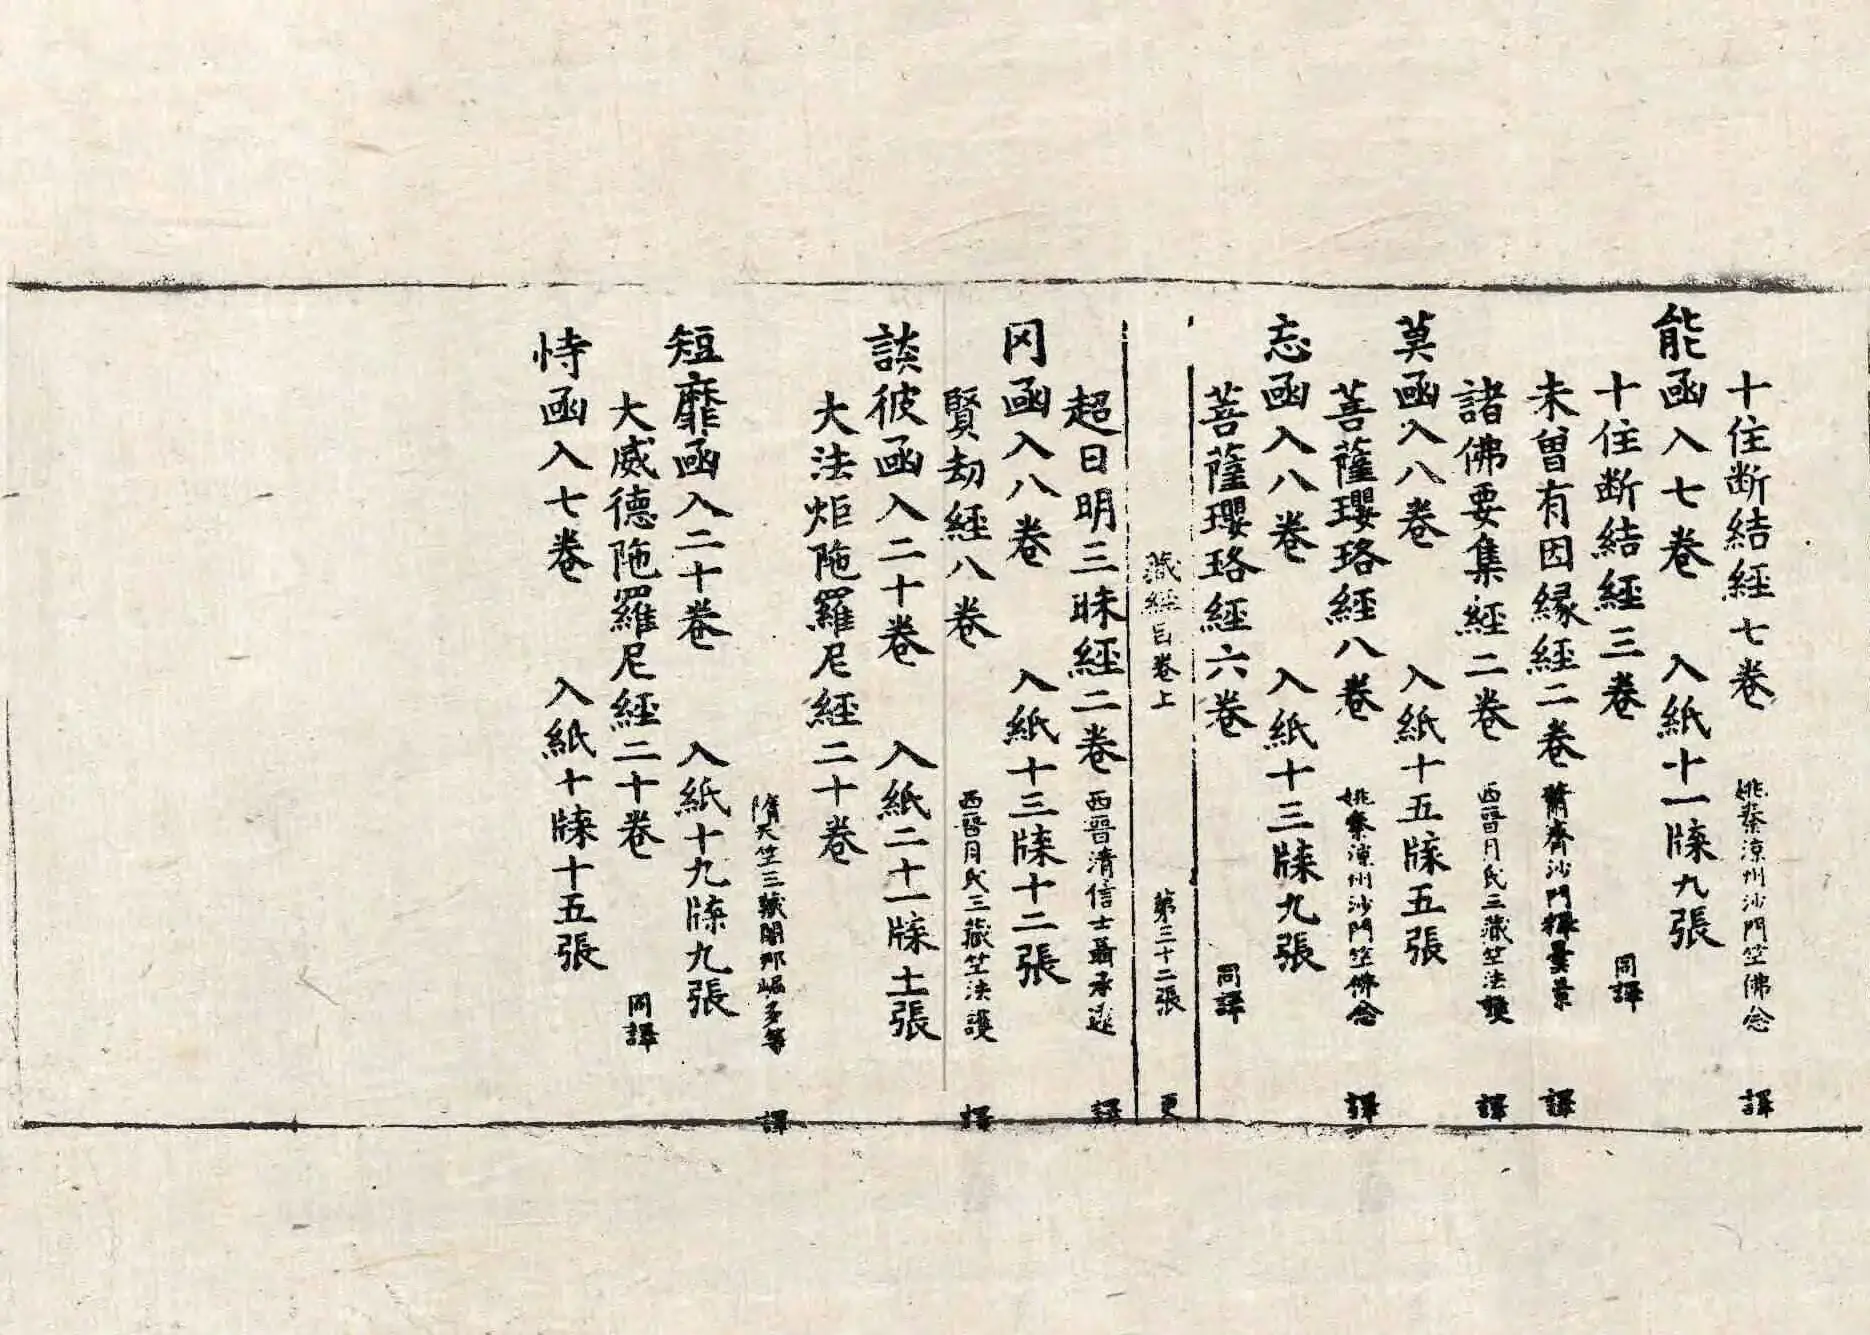 十住断結経七卷 姚秦涼州沙門竺佛念 譯
能函入七卷 入紙十一牓九張
十住断結経三卷 同譯
未曽有因縁経二卷 蕭齊沙門釋曇景 譯
諸佛要集経二卷 西晉月氏三藏竺法護 譯
莫函入八卷 入紙十五牓五張
菩薩瓔珞経八卷 姚秦涼州沙門竺佛念 譯
忘函入八卷 入紙十三牓九張
菩薩瓔珞経六卷 同譯
藏経目卷上 第三十二張 更
超日明三昧経二卷 西晉清信士聶承遠 譯
罔函入八卷 入紙十三牓十二張
賢劫経八卷 西晉月氏三藏竺法護 譯
談彼函入二十卷 入紙二十一牓十一張
大法炬陁羅尼経二十卷
隋天竺三藏闍那崛多等 譯
短靡函入二十卷 入紙十九牓九張
大威德陁羅尼経二十卷 同譯
恃函入七卷 入紙十牓十五張